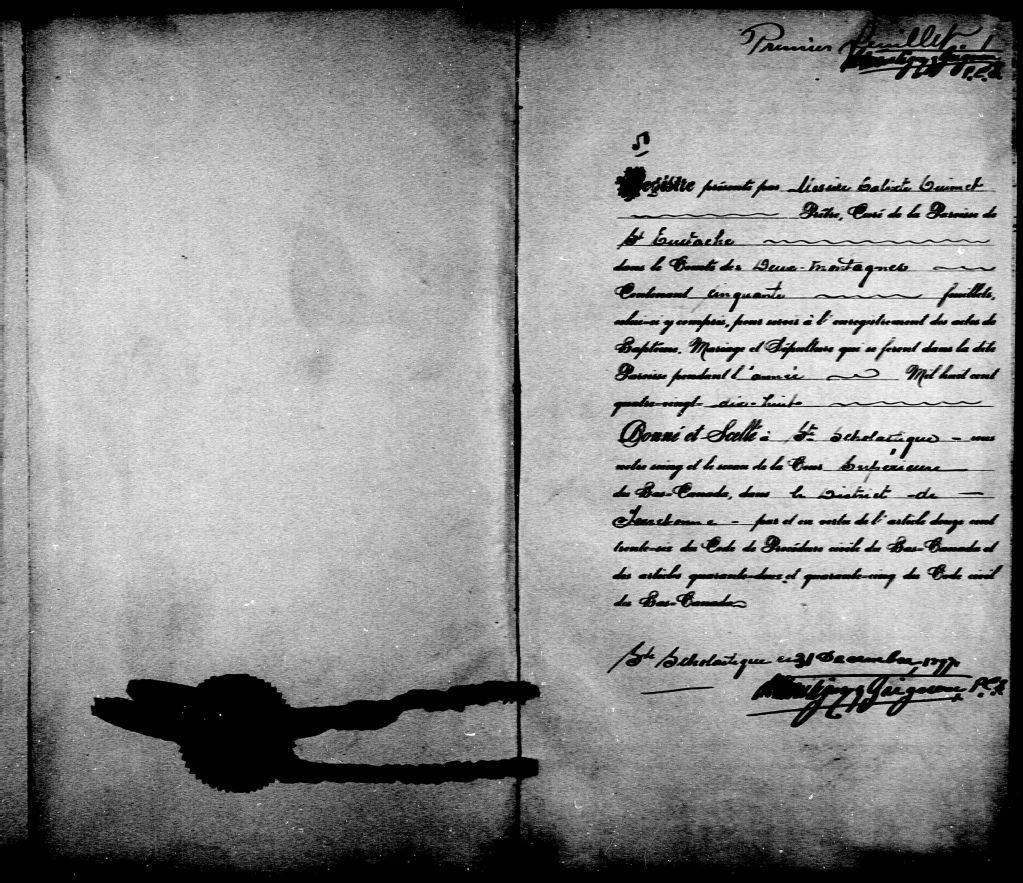 Premier feuillet. 1
P.C.S.
Registre présenté par Messire Calixte Ouimet
Prêtre, Curé de la Paroisse de
St Eustache
dans le Comté des Deux-Montagnes
Contenant cinquante feuillets,
celui-ci y compris, pour servir à l'enregistrement des actes de
Baptême, Mariage et Sépulture qui se feront dans la dite
Paroisse pendant l'année Mil huit cent
quatre-vingt-dix-huit
Donné et Scellé à Ste Scholastique - sous
notre seing et le sceau de la Cour Supérieure
du Bas-Canada, dans le District de
Terrebonne - par et en vertu de l'article douze cent
trente-six du Code de Procédure civile du Bas-Canada et
des articles quarante-deux et quarante-cinq du Code civil
du Bas-Canada
Ste Scholastique ce 31 Decembre, 1897.
Grignon P.C.S.